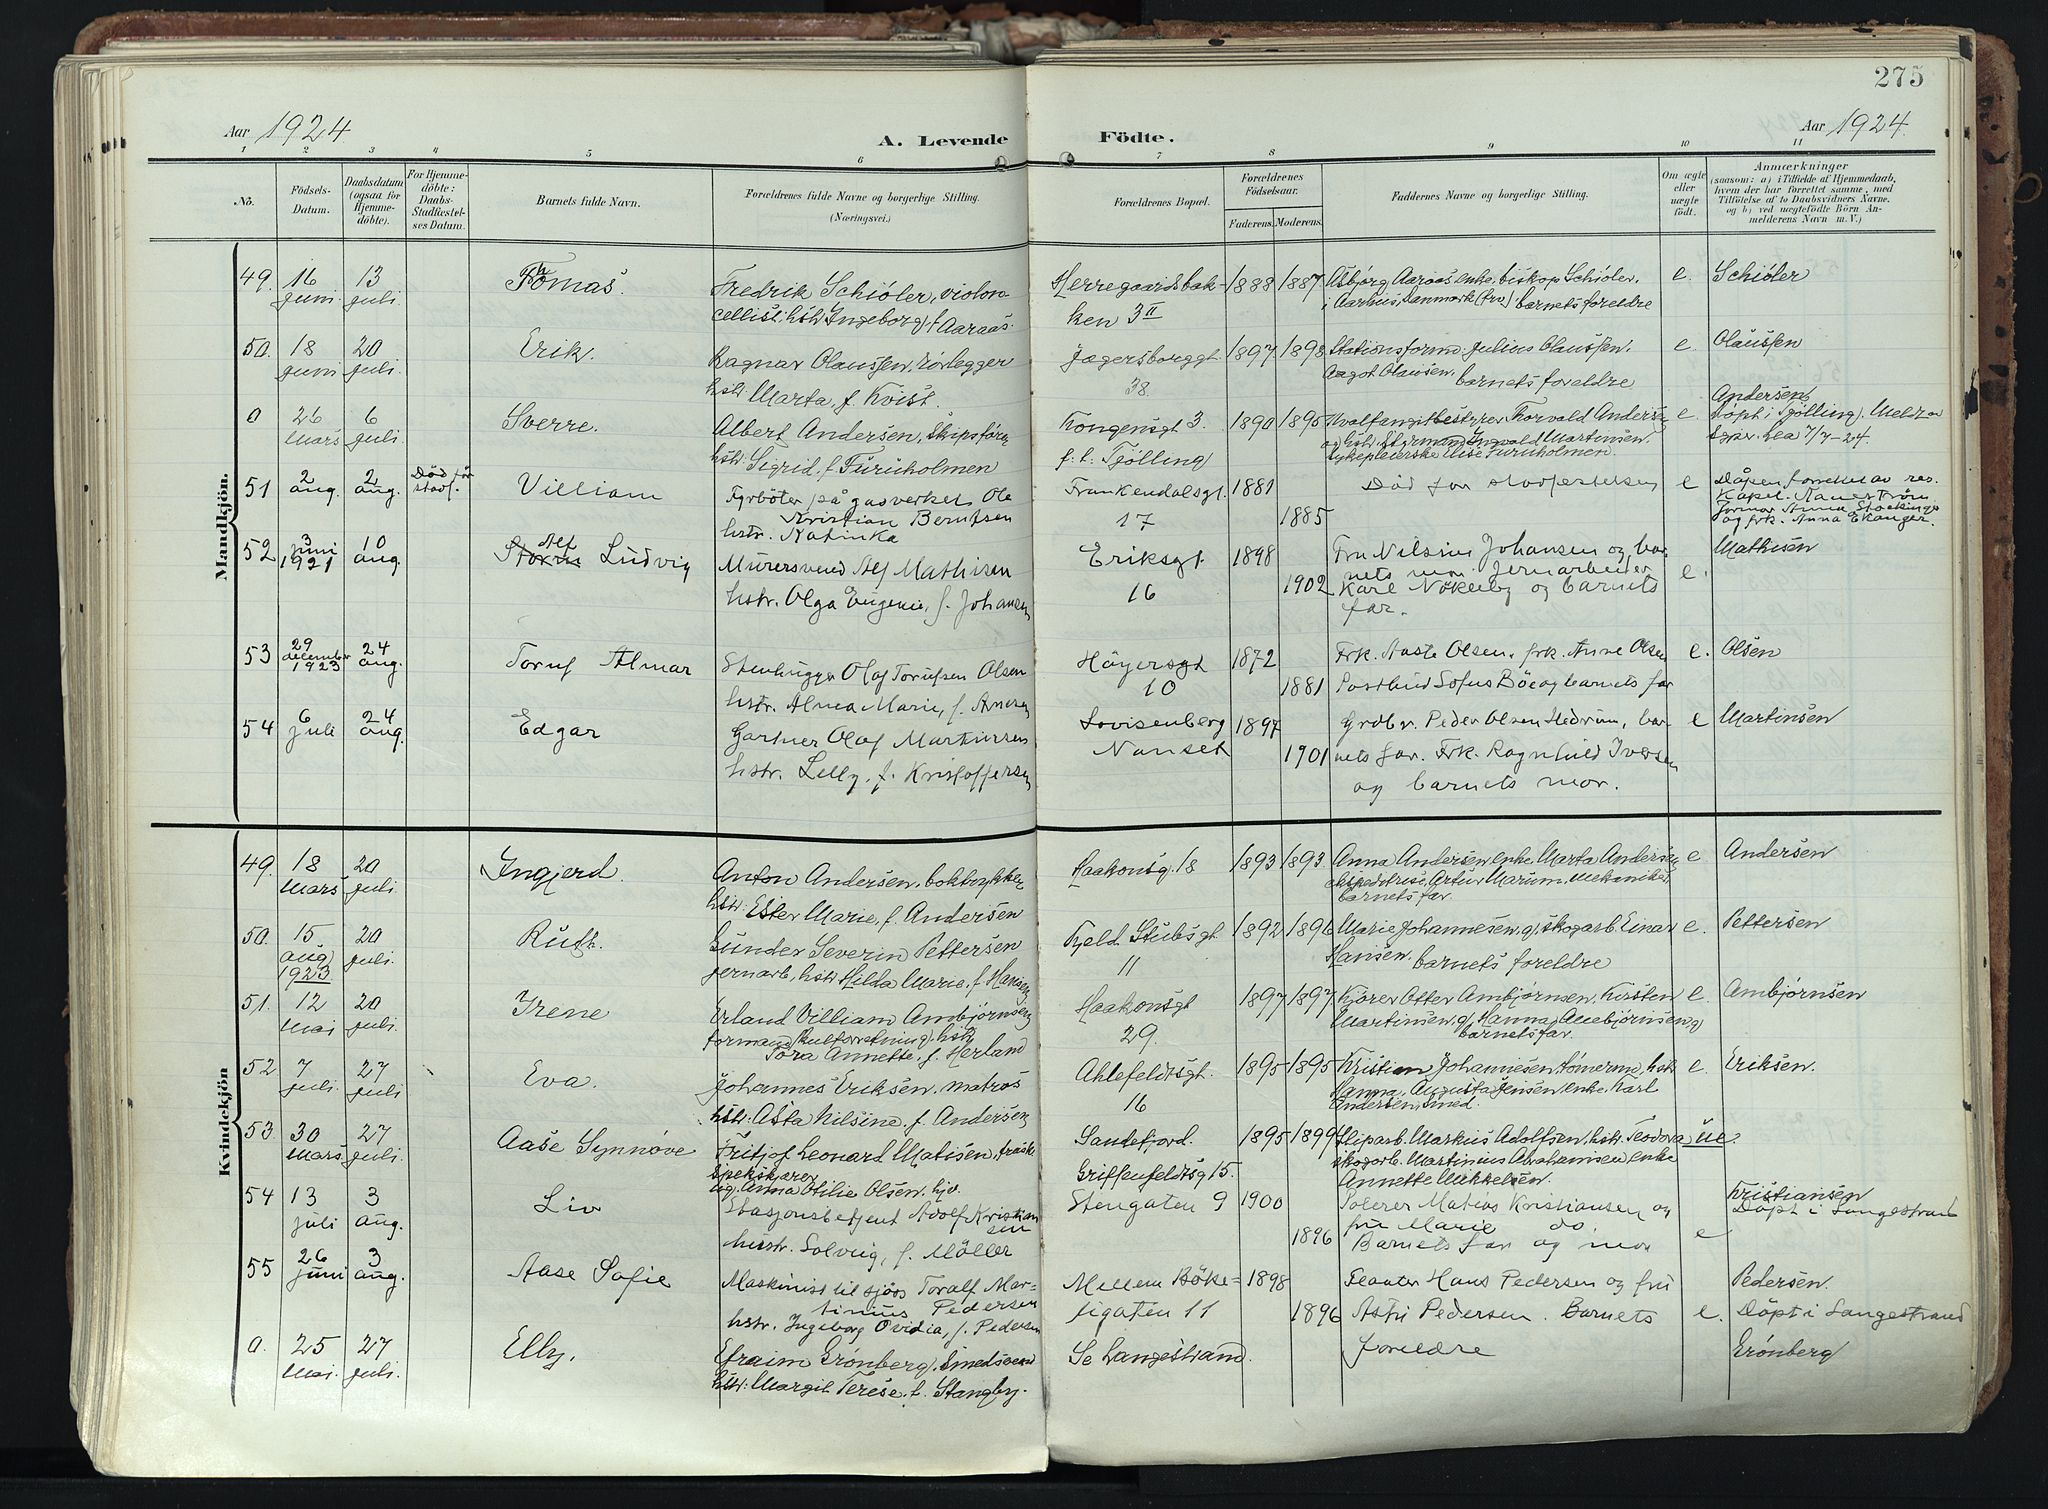 275
Aar 1924
A. Levende Födte.
Aar 1924.
1 2 3 4 5 6 7 8 9 10 11
No.
Födsels-Datum.
Daabsdatum (ogsaa for Hjemmedöbte).
For Hjemmedöbte: Daabs-Stadfæstelses Datum.
Barnets fulde Navn.
Forældrenes fulde Navne og borgerlige Stilling.
(Næringsvei.)
Forældrenes Bopæl.
Forældrenes Födselsaar.
Faderens. Moderens.
Faddernes Navne og borgerlige Stilling.
Om ægte eller uægte födt.
Anmærkninger
(saasom: a) i Tilfælde af Hjemmedaab, hvem der har forrettet samme, med Tilföielse af to Daabsvidners Navne. og b) ved uægtefödte Börn Anmelderens Navn m. V.)
Mandkjön.
49. 16 juni. 13 juli. Thomas. Fredrik Schiöler, violon-
cellist, hstr Ingeborg f. Aaraas.
Herregaardsbak-
ken 3 II
1888 1887 Asbjörg Aaraas, enke, biskop Schiöler,
i Aarhus, Danmark (frv) barnets foreldre
e. Schiöler
50. 18 juni 20 juli. Erik. Ragnar Olaussen, rörlegger
hstr Marta f. Kvist.
Jægersborggt.
38.
1897 1898 Stationsform. Julius Olaussen,
Aagot Olausen, barnets foreldre
e. Olaussen
0 26 Mars 6 juli. Sverre. Albert Andersen, skipsförer
hstr Sigrid, f. Furuholmen
Kongensgt 3.
f. t. Tjölling
1890 1895 Hvalfangstbestyrer Thorvald Andersen
og hstr. Styrmand Ingvald Martinsen.
Sykepleierske Elise Furuholmen.
e. Andersen,
Döpt i Tjölling.
7/7-24.
51 2 aug. 2 aug. Död för stadf. Villiam Fyrböter på gasverket Ole
Kristian Berntsen
hstr. Katinka
Frankendalsgt.
17
1881 1885 Död för stadfestelsen e Dåpen forrettet av res.
Kapel.
og frk. Anna Ekanger.
52 3 juni 1921 10 aug. Alf Ludvig Murersvend Alf Mathisen
hstr. Olga Eugenie, f. Johansen
Eriksgt.
16
1898 1902 Fru Nilsine Johansen og bar-
nets mor. Jernarbeider
Karl Nökleby og barnets
far.
e. Mathisen
53 29 december 1923 24 aug. Toruf Almar Stenhugger Olaf Torufsen Olsen
hstr. Alma Marie, f. Ansen
Höyersgt
10
1872 1881 Frk. Aaste Olsen, frk. Anne Olsen
Postbud Sofus Böe og barnets far
e. Olsen
54 6 juli 24 aug. Edgar Gartner Olaf Martinsen
hstr. Lelly, f. Kristoffersen
Lovisenberg
Nanset
1897 1901 Grdbr. Peder Olsen Hedrum, bar-
nets far. Frk. Ragnhild Iversen
og barnets mor.
e Martinsen
Kvindekjön
49. 18 Mars 20 juli Ingjerd. Anton Andersen, boktrykker
hstr: Ester Marie, f. Andersen
Haakonsg. 18 1893 1893 Anna Andersen, enke, Marta Andersen
ekspeditrise, Artur Marum, mekaniker,
barnets far.
e Andersen
50. 15 aug 1923 20 juli. Ruth. Gunder Severin Pettersen
jernarb, hstr Hilda Marie, f. Hansen
Kjeld Stubsgt.
11
1892 1896 Marie Johannesen, g, skogarb Einar
Hansen, barnets foreldre
e. Pettersen
51. 12 Mai 20 juli. Irene Erland Villiam Ambjörnsen
formand, hstr
Tora Annette, f. Herland
Haakonsgt
29.
1897 1897 Kjörer Otter Ambjörnsen, Kirsten
Martinsen, g, Hanna Ambjörnsen, g,
barnets far.
e. Ambjörnsen
52. 7 juli. 27 juli Eva. Johannes Eriksen, matros
hstr: Asta Nilsine, f. Andersen
Ahlefeldtsgt.
16
1895 1895 Kristian Johannesen, tömerm, hstr
Hanna, Augusta Jensen, enke, Karl
Andersen, smed.
e. Eriksen.
53. 30 Mars 27 juli. Aase Synnöve Fritjof Leonard Matisen,
spekskjærer
ug. Anna Otilie Olsen, hjv.
Sandefjord.
Griffenfeldtsg 15.
1895 1899 Sliparb. Markus Adolfsen, hstr. Teodora
skogarb. Martinius Abrahamsen, enke
Annette Mikkelsen.
ue.
54 13 juli 3 aug. Liv Stasjonsbetjent Adolf Kristian-
sen
hustr. Solveig, f. Möller
Stengaten 9 1900 1896 Polerer Matias Kristiansen og
fru Marie do.
Barnets far og mor
e Kristiansen
Döpt i Langestrand
55 26 juni 3 aug. Aase Sofie Maskinist til sjöss Toralf Mar-
tinius Pedersen
hstr. Ingeborg Ovidia, f. Pedersen
Mellem Böke-
ligaten 11
1898 1896 Hans Pedersen og fru
Astri Pedersen. Barnets
foreldre
e. Pedersen.
Döpt i Langestrand
0. 25 Mai. 27 juli. Elly. Efraim Grönberg, Smedsvend
hstr: Margit Terese, f. Stangby.
Se Langestrand.
Grönberg